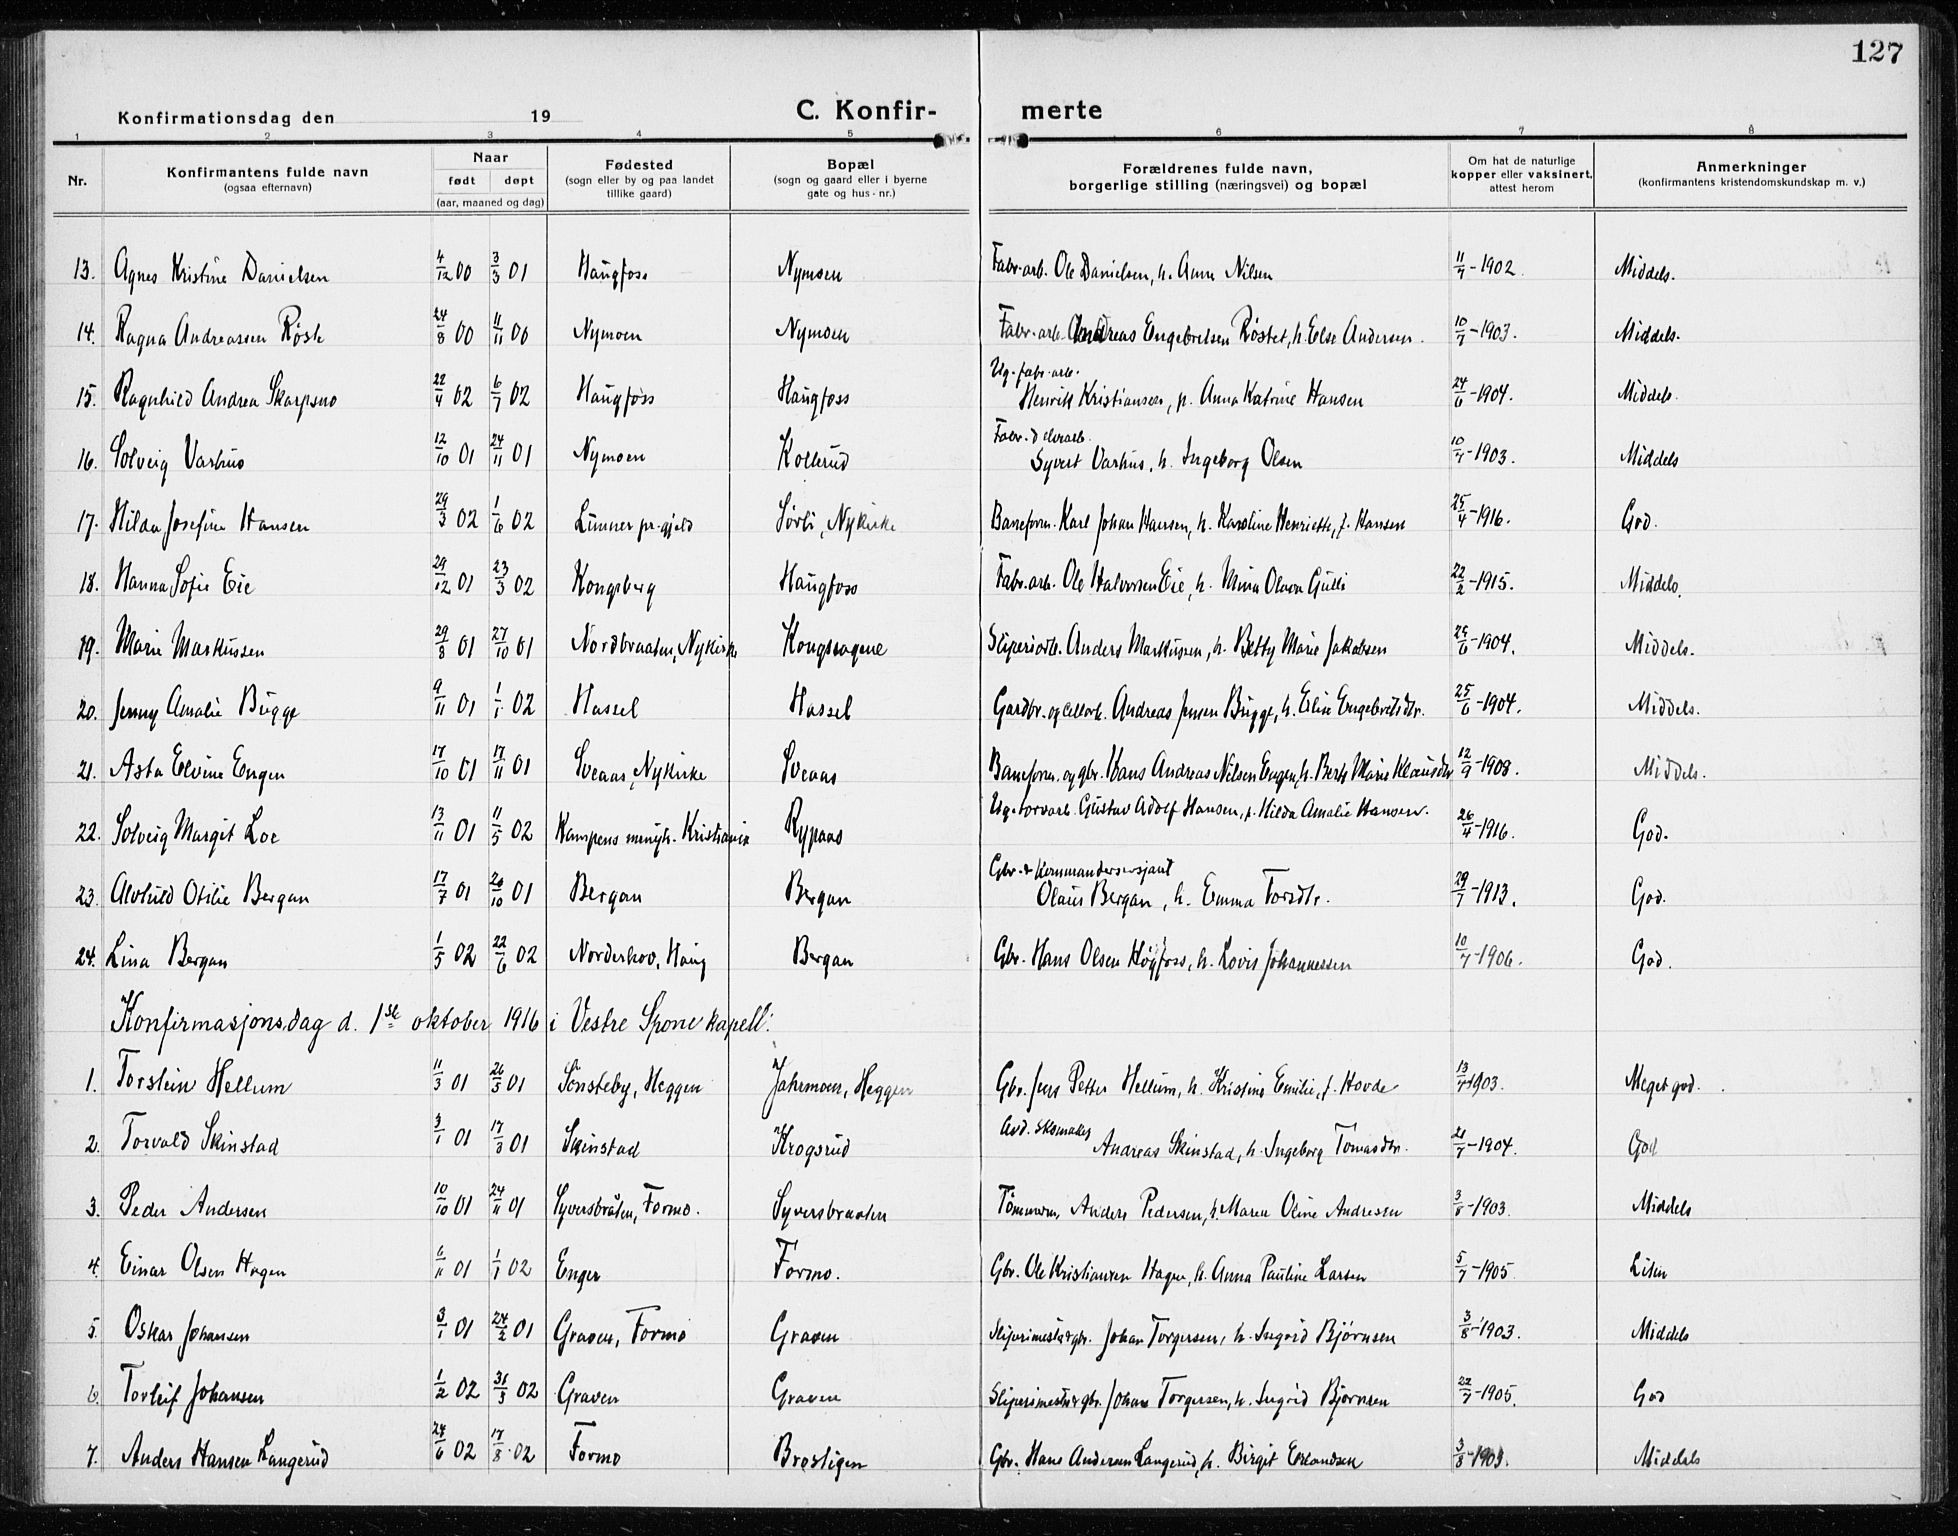 127
Konfirmationsdag den 19 C. Konfir- merte
1 2 3 4 5 6 7 8
Nr. Konfirmantens fulde navn (ogsaa efternavn) Naar født døpt (aar, maaned og dag) Fødested (sogn eller by og paa landet tillike gaard) Bopæl (sogn og gaard eller i byerne gate og hus-nr.) Forældrenes fulde navn, borgerlige stilling (næringsvei) og bopæl Om hat de naturlige kopper eller vaksinert, attest herom Anmerkninger (konfirmantens kristendomskundskap m. v.)
13. Agnes Kristine Danielsen 4/12 00 3/3 01 Haugfoss Nymoen Fabr.arb. Ole Danielsen, h. Anne Nilsen 11/7-1902 Middels.
14. Ragna Andreassen Røste 24/8 00 11/11 00 Nymoen Nymoen Fabr.arb. Andreas Engebretsen Røstet, h. Else Andersen. 10/7-1903. Middels.
15. Ragnhild Andrea Skarpsno 22/4 02 6/7 02 Haugfoss Haugfoss Ug. fabr.arb. Henrik Kristiansen, p. Anna Katrine Hansen 24/6-1904. Middels.
16. Solveig Varhus 12/10 01 24/11 01 Nymoen Kollerud Fabr. Syvert Varhus, h. Ingeborg Olsen 10/7-1903. Middels
17. Hilda Josefine Hansen 29/3 02 1/6 02 Lunner pr.gjeld Sørli, Nykirke Baneform. Karl Johan Hansen, h. Karoline Henriette, f. Hansen 25/4-1916. God.
18. Hanna Sofie Eie 29/12 01 23/3 02 Kongsberg Haugfoss Fabr.arb. Ole Halvorsen Eie, h. Mina Olava Gulli 22/2-1915. Middels.
19. Marie Markussen 29/8 01 27/10 01 Nordbraaten, Nykirke Kongssagene Sliperiarb. Anders Markussen, h. Betty Marie Jakobsen 24/6-1904. Middels.
20. Jenny Amalie Bugge 9/11 01 1/1 02 Hassel Hassel Gardbr. og cellarb. Andreas Jensen Bugge, h. Eline Engebretsdtr. 25/6-1904. Middels.
21. Asta Elvine Engen 17/10 01 17/11 01 Sveaas, Nykirke Sveaas Baneform. og gbr. Hans Andreas Nilsen Engen, h. Berte Marie Klausdtr 12/9-1908. Middels.
22. Solveig Margit Loe 13/11 01 11/5 02 Kampens menigh. Kristiania Rypaas Ug. torvarb. Gustav Adolf Hansen, p. Hilda Amalie Hansen. 26/4-1916. God.
23. Alvhild Otilie Bergan 17/7 01 20/10 01 Bergan Bergan Gbr. & Kommandersersjant Olaus Bergan, h. Emma Torsdtr. 29/7-1913. God.
24. Lina Bergan 1/5 02 22/6 02 Norderhov, Haug Bergan Gbr. Hans Olsen Høgfoss, h. Lovis Johannessen 10/7-1906. God.
Konfirmasjonsdag d. 1ste oktober 1916 i Vestre Spone kapell:
1. Torstein Hellum 11/3 01 26/5 01 Sønsteby, Heggen Jahrmoen, Heggen Gbr. Jens Petter Hellum, h. Kristine Emilie, f. Hovde 13/7-1903. Meget god.
2. Torvald Skinstad 3/1 01 17/3 01 Skinstad Krogsrud Avd. skomaker Andreas Skinstad, h. Ingeborg Tomasdtr. 21/7-1904. God
3. Peder Andersen 10/10 01 24/11 01 Syversbråten, Formo. Syversbraaten Tømmerm. Anders Pedersen, h. Maren Oline Andresen 3/8-1903. Middels
4. Einar Olsen Hagen 6/11 01 1/1 02 Enger Formo. Gbr. Ole Kristiansen Hagen, h. Anna Pauline Larsen 5/7-1905. Liten
5. Oskar Johansen 3/1 01 24/2 01 Graven, Formo Graven Sliperimester & gbr. Johan Torgersen, h. Ingrid Bjørnsen 3/8-1903. Middels
6. Torleif Johansen 1/2 02 31/3 02 Graven Graven Sliperimester & gbr. Johan Torgersen, h. Ingrid Bjørnsen 22/7-1905. God
7. Anders Hansen Langerud 24/6 02 17/8 02 Formo Brostigen Gbr. Hans Andersen Langerud, h. Birgit Erlandsen 3/8-1903. Middels